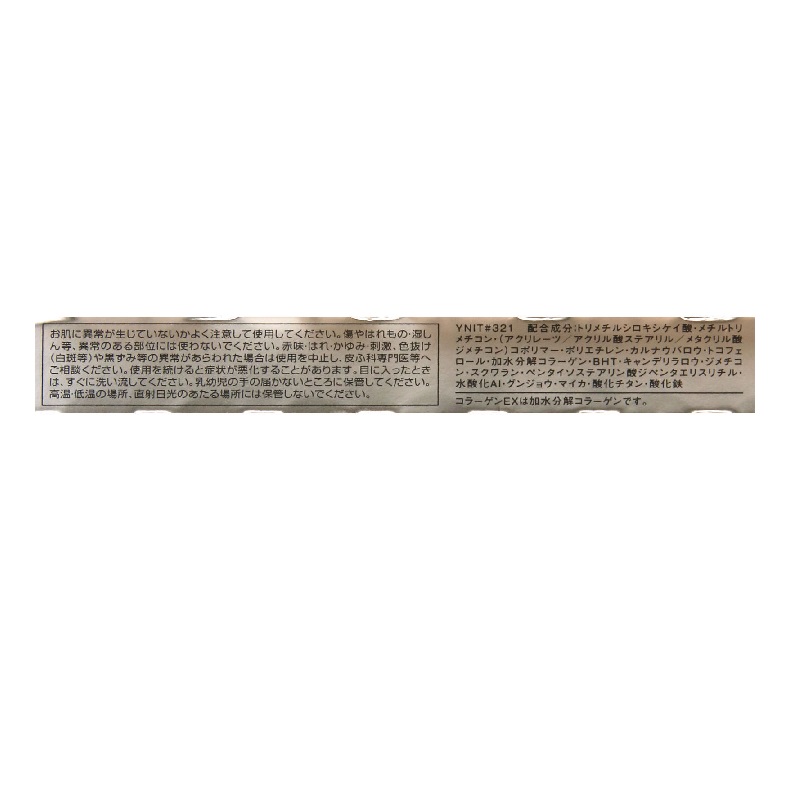 お肌に異常が生じていないかよく注意して使用してください。傷やはれもの・湿し
ん等、異常のある部位には使わないでください。赤味・はれ・かゆみ・刺激、色抜け
(白斑等)や黒ずみ等の異常があらわれた場合は使用を中止し、皮ふ科専門医等へ
ご相談ください。使用を続けると症状が悪化することがあります。目に入ったとき
は、すぐに洗い流してください。乳幼児の手の届かないところに保管してください。
高温・低温の場所、直射日光のあたる場所には保管しないでください。
YNIT#321 配合成分:トリメチルシロキシケイ酸・メチルトリ
メチコン・(アクリレーツ/アクリル酸ステアリル/メタクリル酸
ジメチコン)コポリマー・ポリエチレン・カルナウバロウ・トコフェ
ロール・加水分解コラーゲン・BHT・キャンデリラロウ・ジメチコ
ン・スクワラン・ペンタイソステアリン酸ジペンタエリスリチル・
水酸化Al・グンジョウ・マイカ・酸化チタン・酸化鉄
コラーゲンEXは加水分解コラーゲンです。